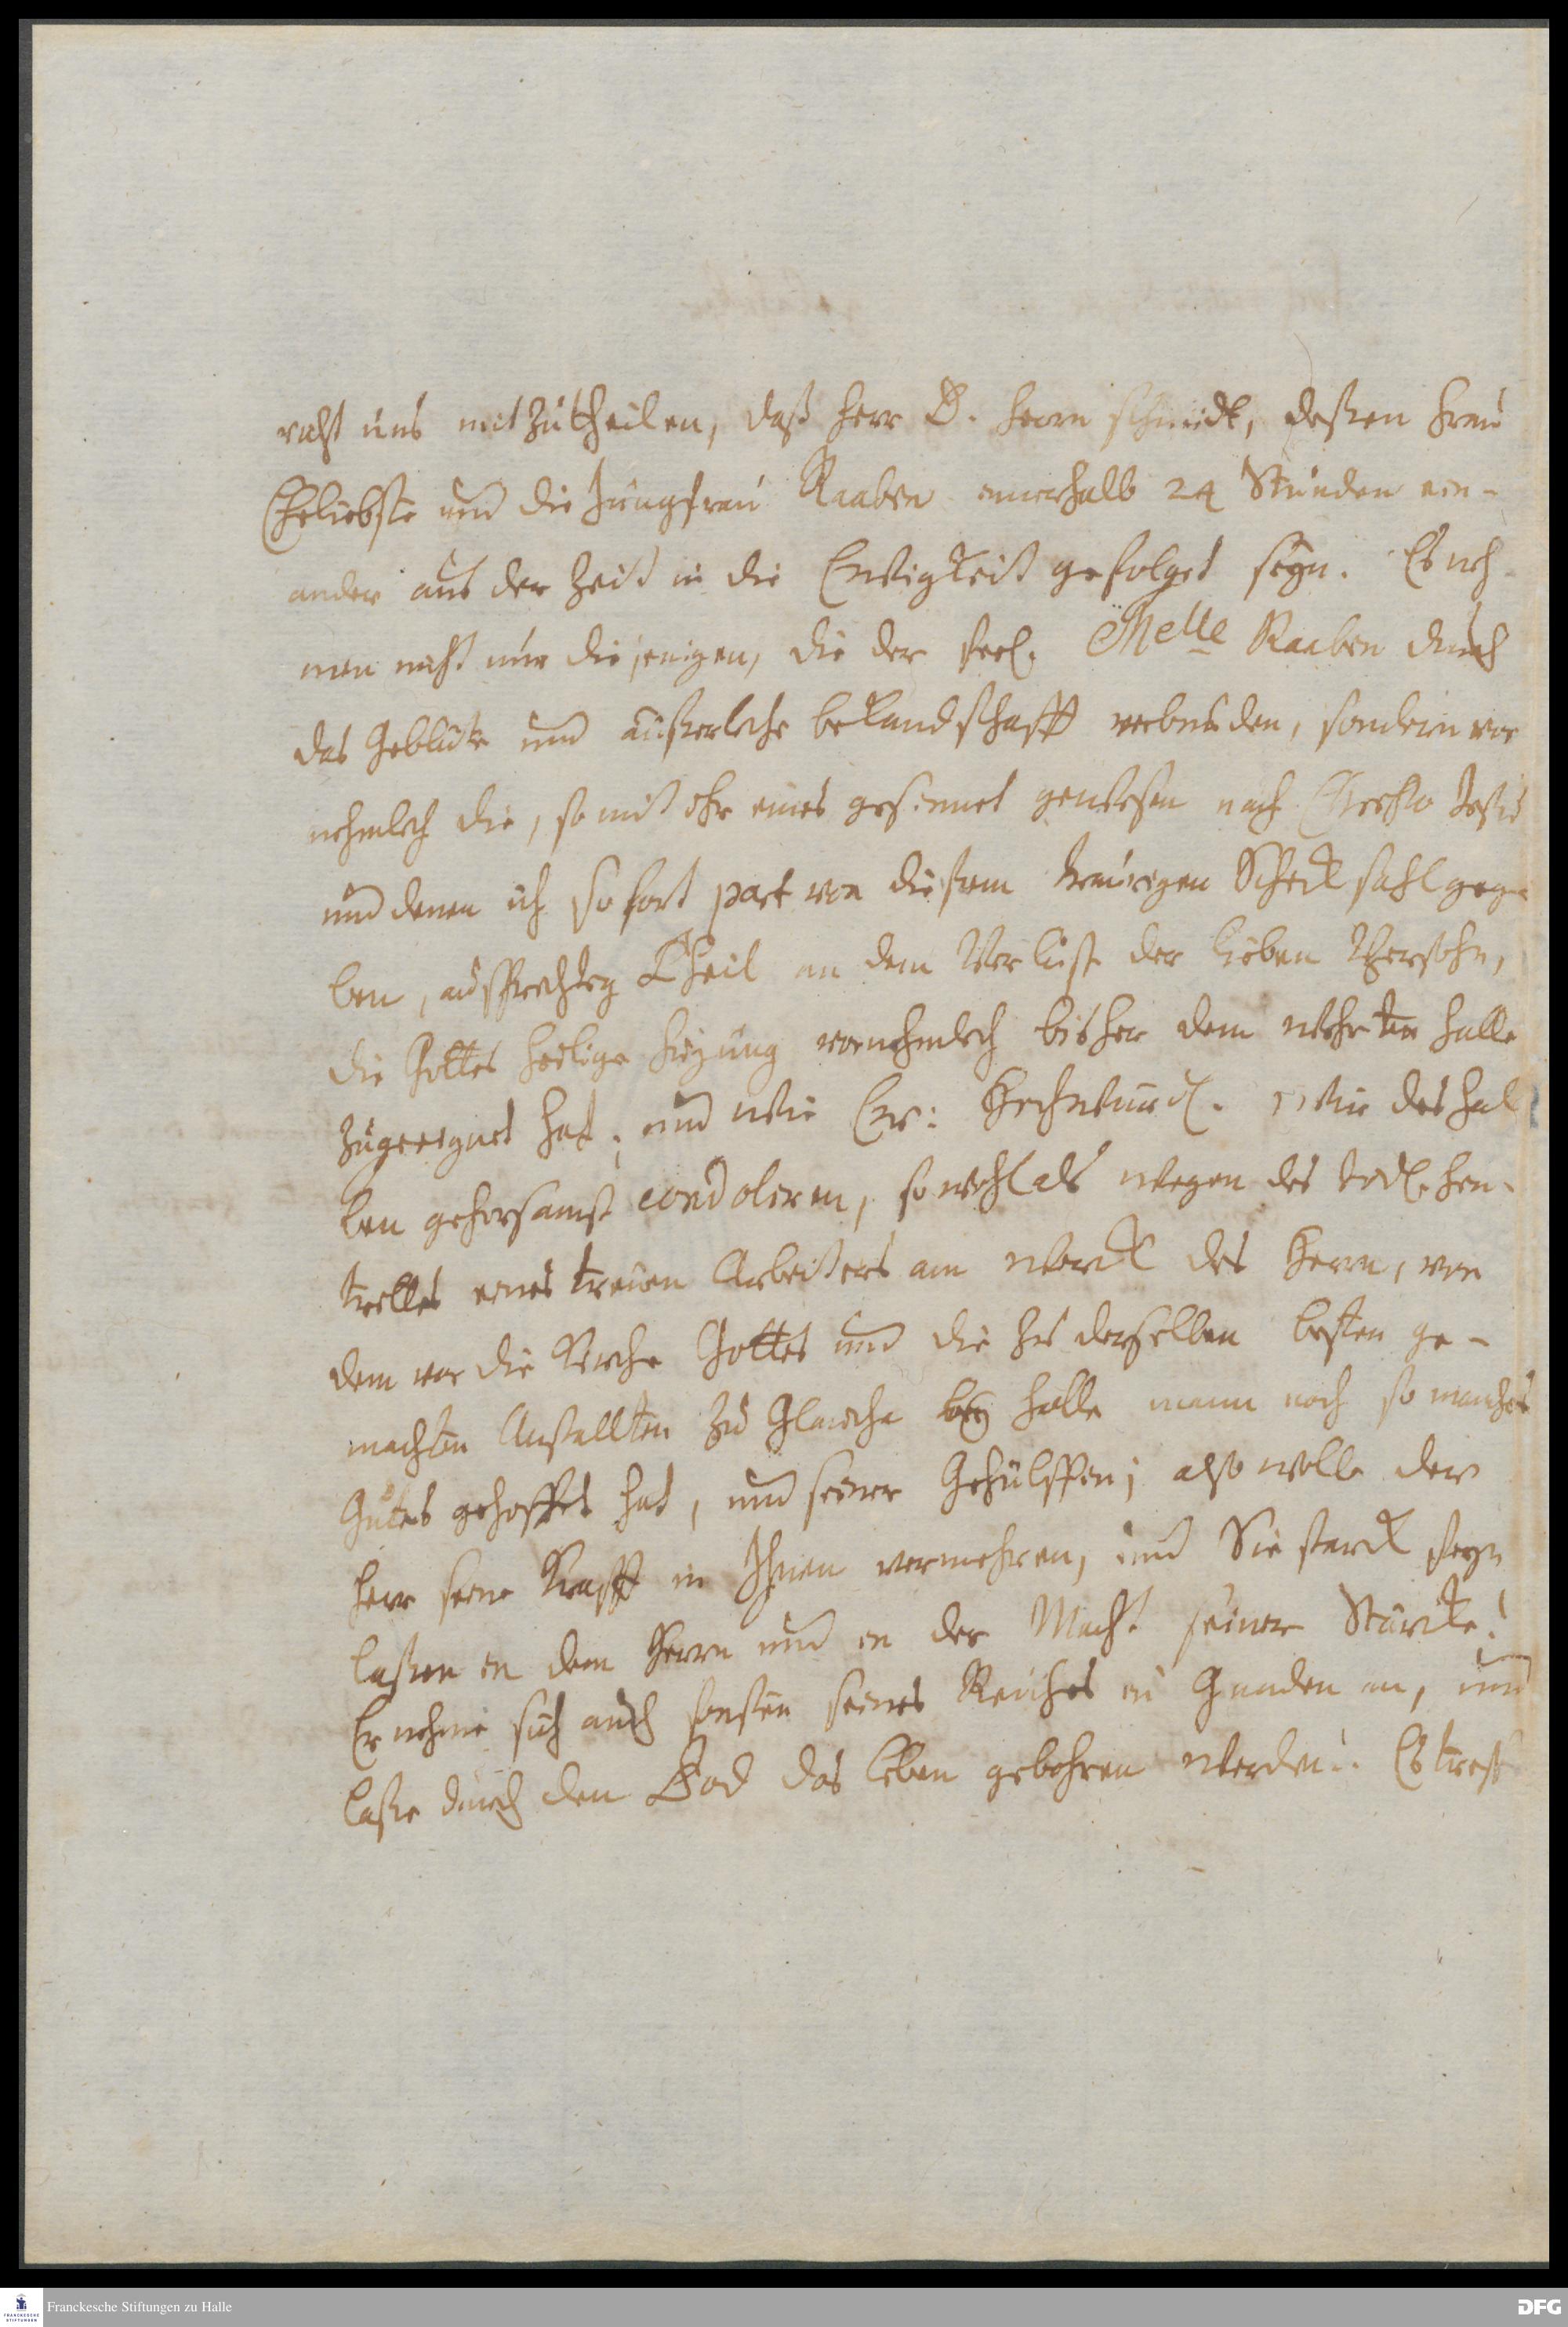 richt uns mitzutheilen, daß Herr D. Herrnschmidt, deßen Frau
Eheliebste und die Jungfrau Raaben innerhalb 24 Stunden ein-
ander aus der Zeit in die Ewigkeit gefolget seyn. Es neh-
men nicht nur diejenigen, die der seel. Melle Raaben durch
das Geblüte und äußerliche bekandschafft verbunden, sondern vor
nehmlich die, so mit ihr eines gesinnet gewesen nach Christo Jesu
und denen ich sofort part von diesem traurigen Schicksahl gege-
ben, auffrichtig Theil an dem Verlust der lieben Persohn,
die Gottes heilige Fügung vornehmlich bisher dem wehrten Halle
zugeeignet hat; und wie Ew: Hochwürd. wir deshal
ben gehorsamst condoliren, so wohl als wegen des tödl. Hin-
trittes eines treuen Arbeiters am Werck des Herrn, von
dem vor die Kirche Gottes und die zu derselben besten ge-
machten Anstallten zu Glaucha bey Halle mann noch so manches
Gutes gehoffet hat, und seiner Gehülffin; also wolle der
Herr seine Krafft in Ihnen vermehren, und Sie starck seyn
laßen in dem Herrn und in der Macht seiner Stärcke!
Er nehme sich auch seines Reiches in Gnaden an, und
laße durch den Tod das Leben gebohren werden. Es treff
Franckesche Stiftungen zu Halle
FRANCKESCHE STIFTUNGEN
DFG